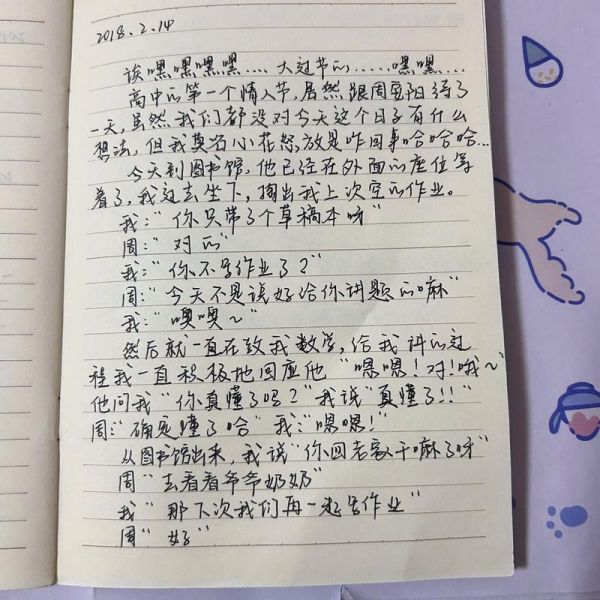 2018.2.14
诶嘿嘿嘿嘿.... 大过节的.....嘿嘿...
高中的第一个情人节,居然跟周
一天,虽然我们都没对今天这个日子有什么
想法,但我莫名心花怒放是咋回事哈哈哈...
今天到图书馆,他已经在外面的座位等
着了,我过去坐下,掏出我上次空的作业。
我:“你只带了个草稿本呀”
周:“对的”
我:“你不写作业了?”
周:“今天不是说好给你讲题的嘛”
我:“噢噢~”
然后就一直在教我数学,给我讲的过
程我一直积极地回应他“嗯嗯!对!哦~”
他问我“你真懂了吗?”我说“真懂了!!”
周:“确定懂了哈”我:“嗯嗯!”
从图书馆出来,我说“你回老家干嘛了呀”
周“去看看爷爷奶奶”
我“那下次我们再一起写作业”
周“好”